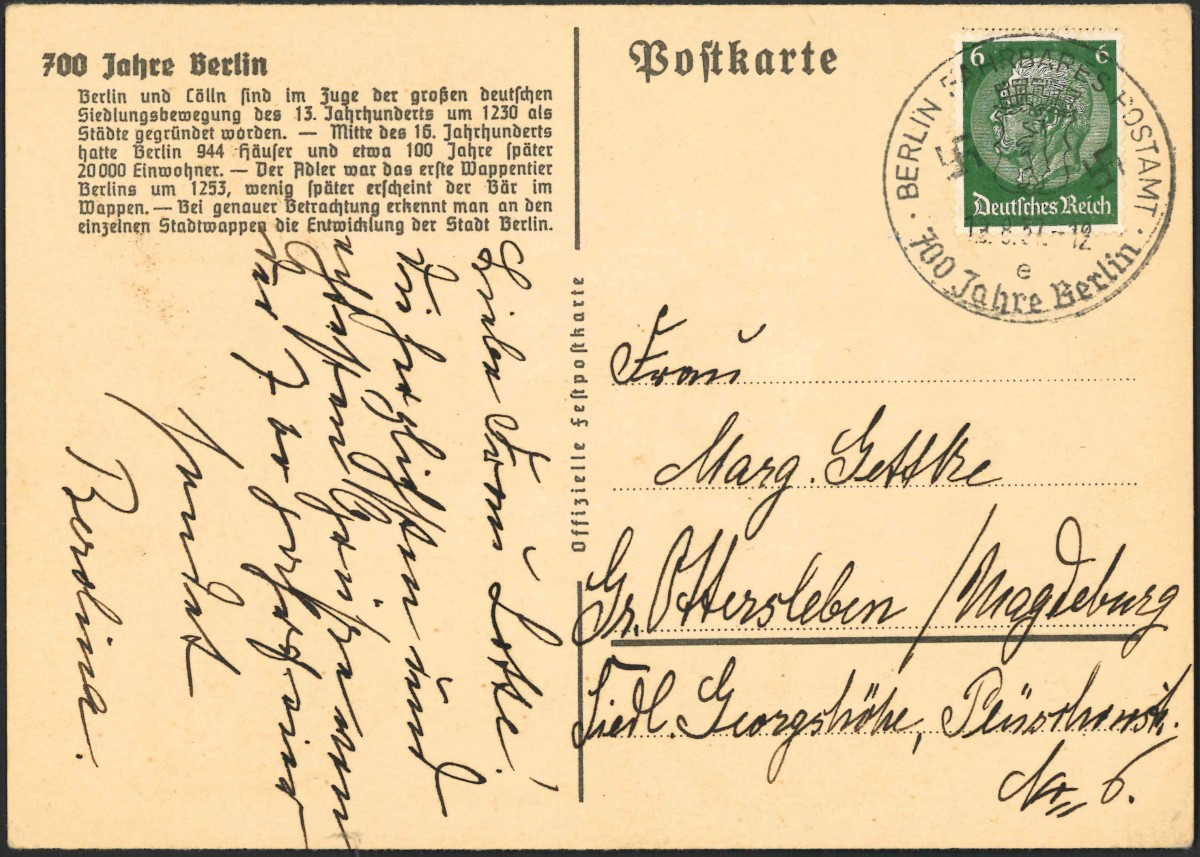 700 Jahre Berlin
Berlin und Cölln sind im Zuge der großen deutschen
Siedlungsbewegung des 13. Jahrhunderts um 1230 als
Städte gegründet worden. — Mitte des 16. Jahrhunderts
hatte Berlin 944 Häuser und etwa 100 Jahre später
20000 Einwohner. — Der Adler war das erste Wappentier
Berlins um 1253, wenig später erscheint der Bär im
Wappen. — Bei genauer Betrachtung erkennt man an den
einzelnen Stadtwappen die Entwicklung der Stadt Berlin.
Liebe Frau Lotte!
Die herzlichsten und
von
das
sendet
Berolina.
Offizielle Festpostkarte
Postkarte
6 6
Deutsches Reich
BERLIN FAHRBARES POSTAMT
8.37.-12
e
700 Jahre Berlin
Frau
Marg. Gettke
Gr. Ottersleben / Magdeburg
Siedl. Georgshöhe,
Nr. 6.